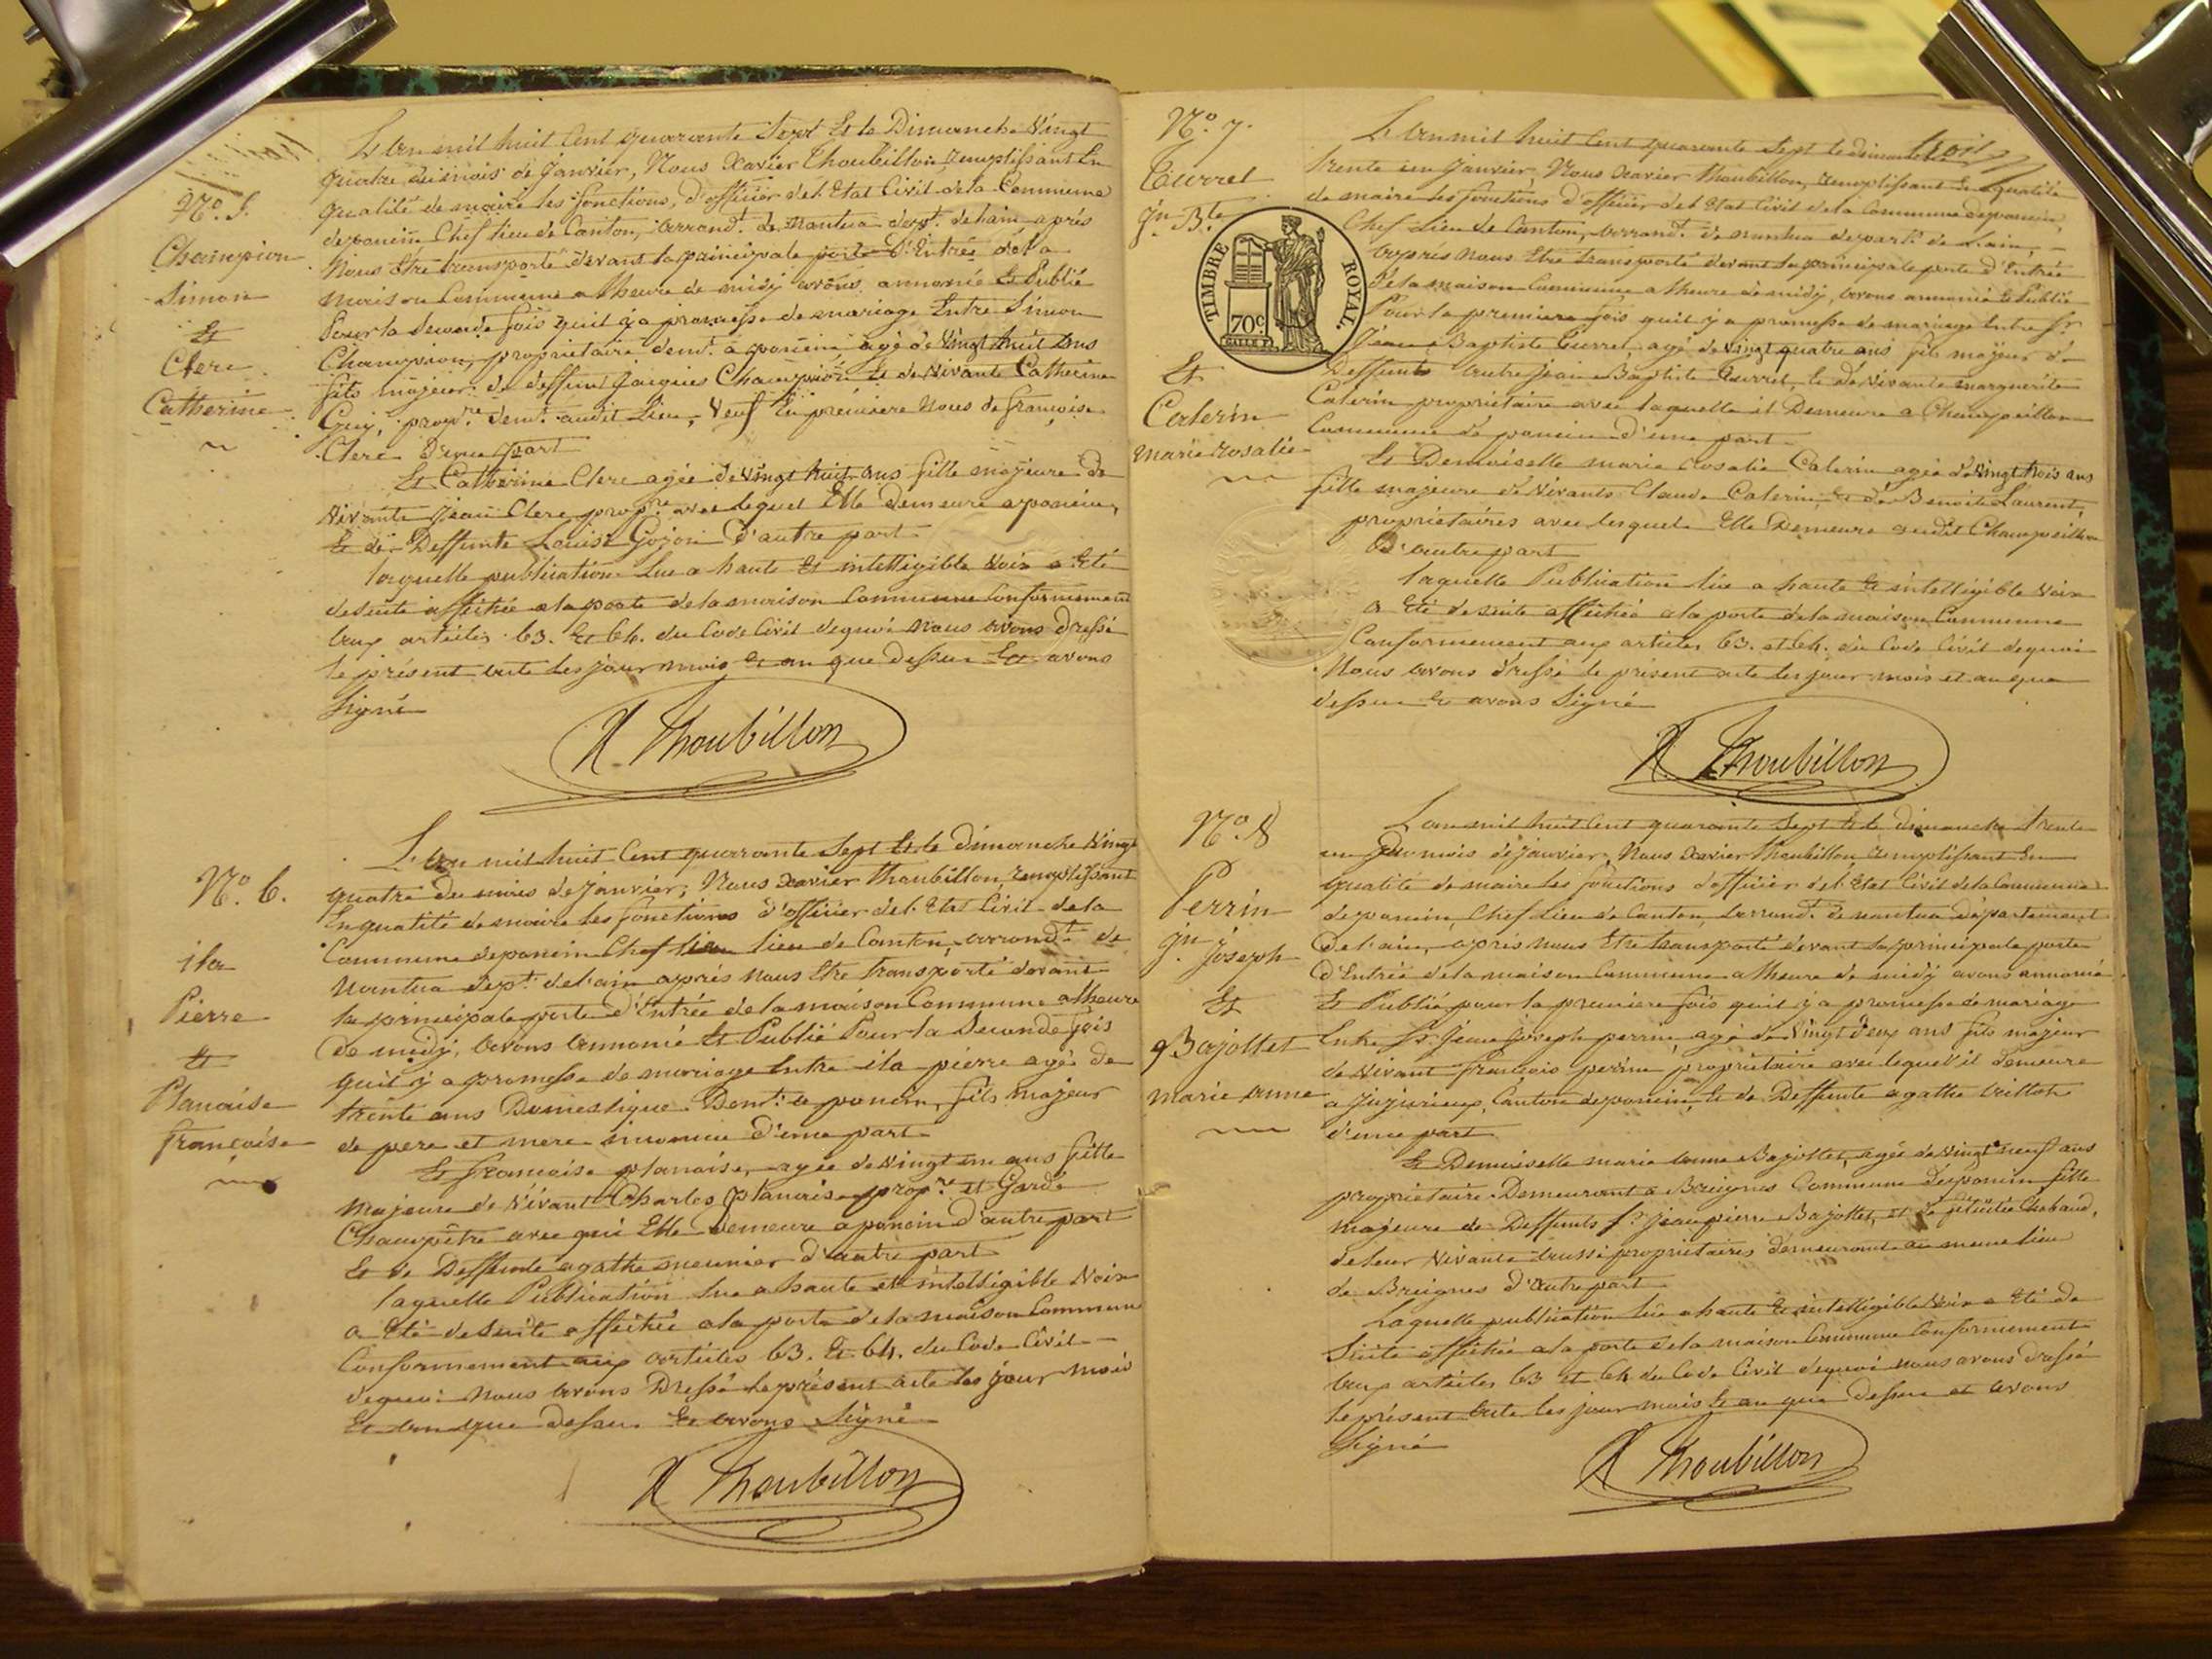 N.o 5.
Champion
Simon
Et
Clerc
Catherine
L'an mil huit Cent quarante Sept Et le Dimanche Vingt
quatre du mois de Janvier, Nous Xavier Thoubillon remplissant En
qualité de maire les fonctions d'officier de l'Etat Civil de la Commune
deponcin Chef lieu de Canton, arrond.t de nantua dep.t de lain après
Nous Etre transporté devant la principale porte D'Entrée dela
maison Commune a lheure de midy avons annoncé Et Publié
Pour la Seconde fois quil y a promesse de mariage Entre Simon
Champion, propriétaire dem.t a poncin agé de Vingt huit ans
fils majeur de deffunt Jacques Champion Et de Vivante Catherine
Guy, prop.re dem.t audit Lieu, Veuf En premiere Nous de françoise
Clerc D'une part
Et Catherine Clerc agée de Vingt huit ans fille majeure de
Vivante Jean Clerc prop.re avec lequel Elle demeure a poncin,
Et de Deffunte Louise Gojon D'autre part
laquelle publication Lue a haute Et intelligible Voix a Eté
desuite affichée ala porte dela maison Commune Conformement
aux articles 63. Et 64. du Code Civil dequoi Nous avons dressé
le présent acte Les jour mois Et an que dessus Et avons
Signé
X. Thoubillon
N.o 6.
ila
Pierre
Et
Planaise
françoise
L'an mil huit Cent quarante Sept Et le dimanche Vingt
quatre du mois de Janvier, Nous Xavier Thoubillon remplissant
En qualité de maire les fonctions d'officier del'Etat Civil de la
Commune deponcin Chef lieu lieu de Canton, arrond.t de
Nantua dep.t del'ain après nous Etre transporté devant
la principale porte d'Entrée dela maison Commune alheure
de midy, avons annoncé Et Publié Pour la Seconde fois
quil y a promesse de mariage Entre ila pierre agé de
trente ans Domestique Dem.t a poncin, fils majeur
de pere et mere inconnu d'une part
Et françoise planaise, agée de Vingt un ans fille
majeure de Vivant Charles Planaise prop.re et Garde
Champêtre avec qui Elle demeure a poncin d'autre part
Et de Deffunte agathe meunier d'autre part
laquelle Publication lue a haute et intelligible Voix
a Eté desuite affichée ala porte dela maison Commune
Conformement aux articles 63. Et 64. du Code Civil
dequoi Nous avons Dressé le présent acte les jour mois
Et an que dessus Et avons Signé
X Thoubillon
N.o 7.
Curret
J.n B.te
Et
Caterin
marie rosalie
TIMBRE ROYAL.
70c
L'an mil huit Cent quarante Sept le dimanche
trente un Janvier, Nous Xavier Thoubillon, remplissant En qualité
de maire les fonctions d'officier del'Etat Civil dela Commune deponcin,
Chef Lieu de Canton, arrond.t de nantua depart.t de L'ain,
après Nous Etre transporté devant la principale porte d'Entrée
dela maison Commune alheure de midy, avons annoncé Et Publié
Pour la premiere fois quil y a promesse de mariage Entre S.r
Jean Baptiste Curret, agé de Vingt quatre ans fils majeur de
Deffunts autre Jean Baptiste Curret, Et de Vivante marguerite
Caterin propriétaire avec laquelle il Demeure a Champeillon
Commune de poncin d'une part
Et Demoiselle marie rosalie Caterin agée de Vingt trois ans
fille majeure de Vivants Claude Caterin, Et de Benoite Laurent,
propriétaires avec lesquels Elle Demeure audit Champeillon
D'autre part
laquelle Publication lue a haute Et intelligible Voix
a Eté desuite affichée ala porte dela maison Commune
Conformement aux articles 63. et 64. du Code Civil dequoi
Nous avons dressé le présent acte les jour mois et an que
dessus Et avons Signé
X Thoubillon
N.o 8
Perrin
J.n Joseph
Et
Bajollet
marie anne
L'an mil huit Cent quarante Sept Et le dimanche trente
un du mois de Janvier, Nous Xavier Thoubillon remplissant En
qualité de maire les fonctions d'officier del'Etat Civil dela Commune
deponcin, Chef lieu de Canton, arrond.t de nantua département
De l'ain, après nous Etre transporté devant la principale porte
D'Entrée dela maison Commune alheure de midy avons annoncé
Et Publié pour la premiere fois quil y a promesse de mariage
Entre S.r Jean Joseph perrin, agé de Vingt deux ans fils majeur
de Vivant françois perrin propriétaire avec lequel il demeure
a Jujurieux, Canton deponcin, Et de Deffunte agathe
d'une part
Et Demoiselle marie anne Bajollet, agée de Vingt neuf ans
propriétaire Demeurant a Breignes Commune de poncin fille
majeure de Deffunts S.r Jean pierre Bajollet, et Chabaud,
de leur Vivante aussi propriétaires demeurant au meme lieu
de Breignes D'autre part
Laquelle publication lue a haute Et intelligible Voix a Eté de
Suite affichée ala porte dela maison Commune Conformement
aux articles 63 et 64 du Code Civil dequoi nous avons dressé
le présent acte les jour mois Et an que Dessus et avons
Signé
X Thoubillon